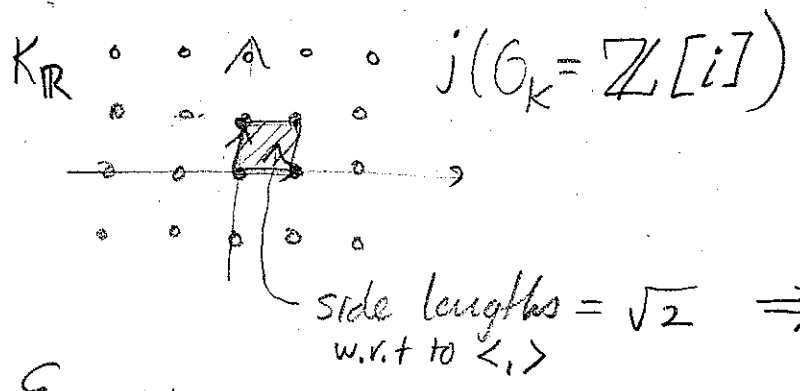 K_ℝ
j(𝒪_K = ℤ[i])
side lengths = √2 ⇒
w.r.t to <,>